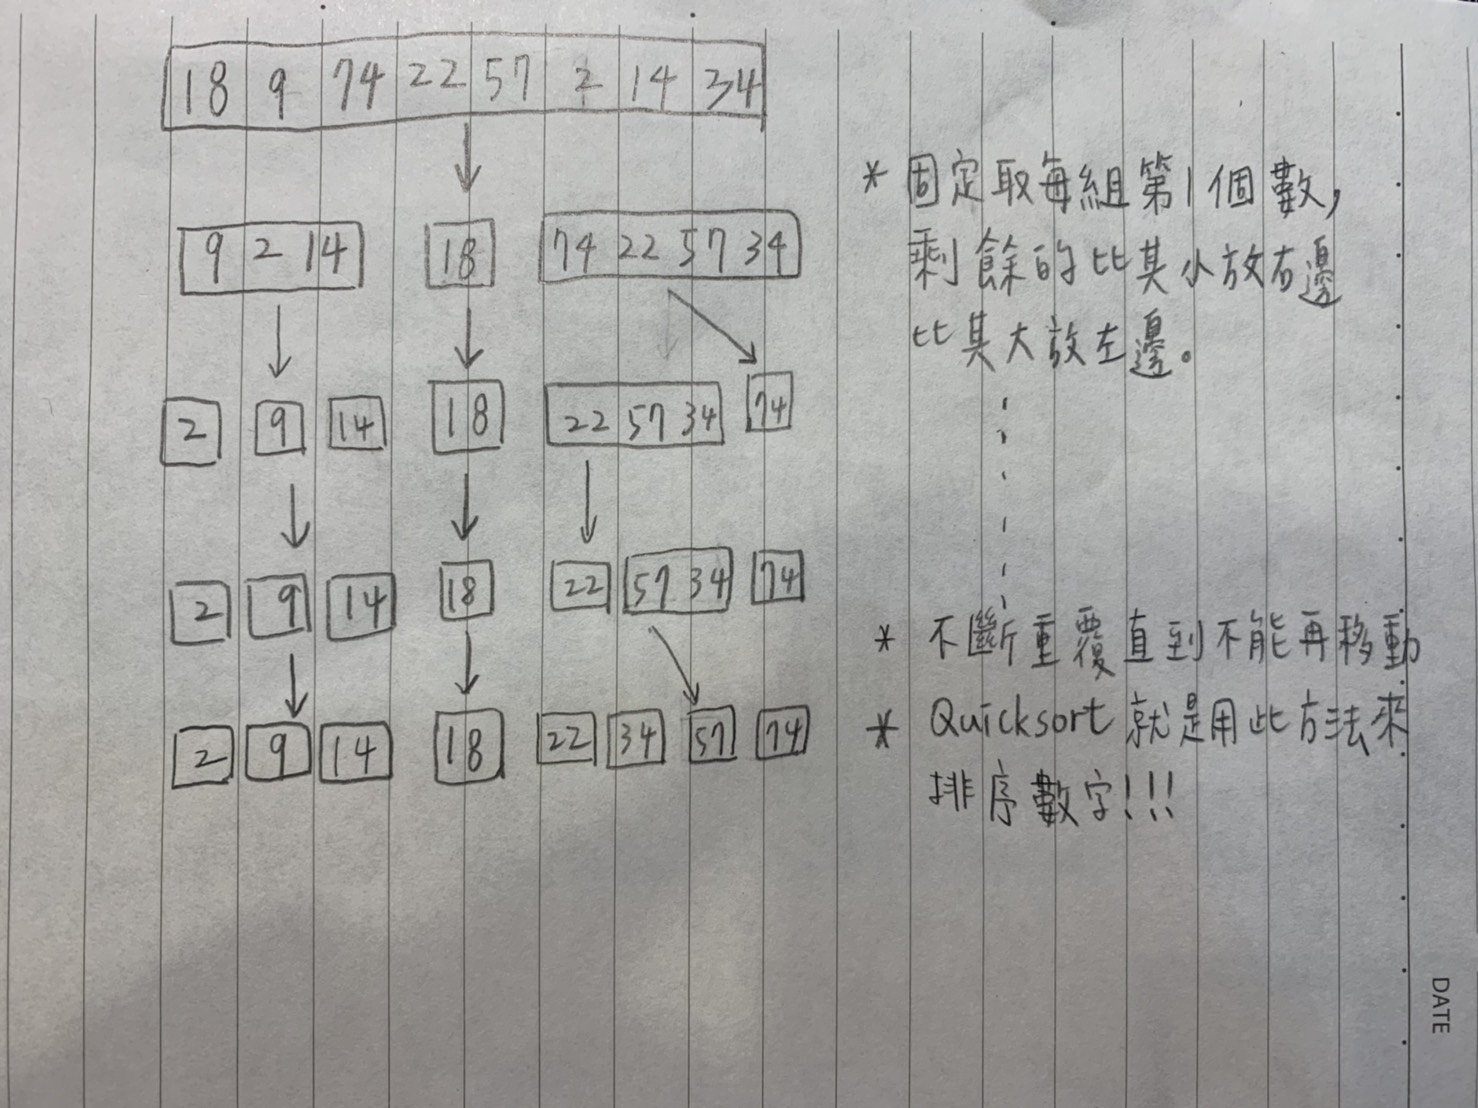 18 9 74 22 57 2 14 34
9 2 14 18 74 22 57 34
2 9 14 18 22 57 34 74
2 9 14 18 22 57 34 74
2 9 14 18 22 34 57 74
* 固定取每組第1個數,
剩餘的比其小放右邊
比其大放左邊。
* 不斷重覆直到不能再移動
* Quicksort 就是用此方法來
排序數字!!!
DATE